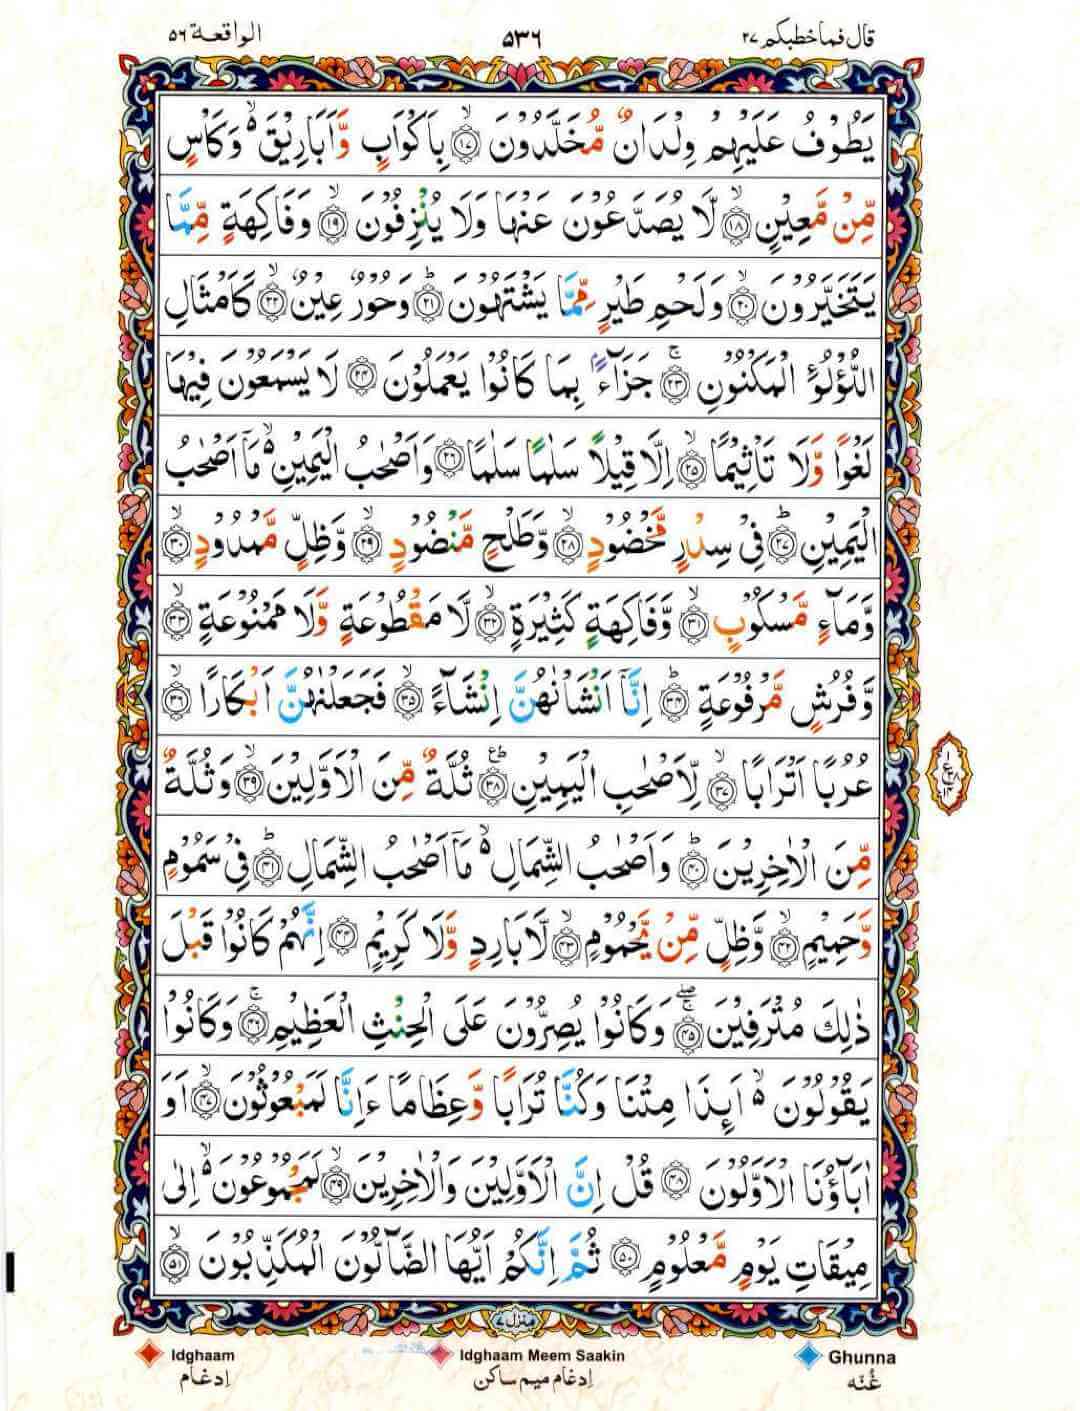 قال فما خطبكم ٢٧
٥٣٦
الواقعة ٥٦
يَطُوْفُ عَلَيْهِمْ وِلْدَانٌ مُّخَلَّدُوْنَ ۙ﴿١٧﴾ بِاَكْوَابٍ وَّاَبَارِيْقَ ۙ وَكَاْسٍ
مِّنْ مَّعِيْنٍ ۙ﴿١٨﴾ لَّا يُصَدَّعُوْنَ عَنْهَا وَلَا يُنْزِفُوْنَ ۙ﴿١٩﴾ وَفَاكِهَةٍ مِّمَّا
يَتَخَيَّرُوْنَ ۙ﴿٢٠﴾ وَلَحْمِ طَيْرٍ مِّمَّا يَشْتَهُوْنَ ؕ﴿٢١﴾ وَحُوْرٌ عِيْنٌ ۙ﴿٢٢﴾ كَاَمْثَالِ
اللُّؤْلُؤِ الْمَكْنُوْنِ ۚ﴿٢٣﴾ جَزَآءًۢ بِمَا كَانُوْا يَعْمَلُوْنَ ﴿٢٤﴾ لَا يَسْمَعُوْنَ فِيْهَا
لَغْوًا وَّلَا تَاْثِيْمًا ۙ﴿٢٥﴾ اِلَّا قِيْلًا سَلٰمًا سَلٰمًا ﴿٢٦﴾ وَاَصْحٰبُ الْيَمِيْنِ ۙ مَاۤ اَصْحٰبُ
الْيَمِيْنِ ؕ﴿٢٧﴾ فِيْ سِدْرٍ مَّخْضُوْدٍ ۙ﴿٢٨﴾ وَّطَلْحٍ مَّنْضُوْدٍ ۙ﴿٢٩﴾ وَّظِلٍّ مَّمْدُوْدٍ ۙ﴿٣٠﴾
وَّمَآءٍ مَّسْكُوْبٍ ۙ﴿٣١﴾ وَّفَاكِهَةٍ كَثِيْرَةٍ ۙ﴿٣٢﴾ لَّا مَقْطُوْعَةٍ وَّلَا مَمْنُوْعَةٍ ۙ﴿٣٣﴾
وَّفُرُشٍ مَّرْفُوْعَةٍ ؕ﴿٣٤﴾ اِنَّاۤ اَنْشَاْنٰهُنَّ اِنْشَآءً ۙ﴿٣٥﴾ فَجَعَلْنٰهُنَّ اَبْكَارًا ۙ﴿٣٦﴾
عُرُبًا اَتْرَابًا ۙ﴿٣٧﴾ لِّاَصْحٰبِ الْيَمِيْنِ ؕ﴿٣٨﴾ ثُلَّةٌ مِّنَ الْاَوَّلِيْنَ ۙ﴿٣٩﴾ وَثُلَّةٌ
مِّنَ الْاٰخِرِيْنَ ؕ﴿٤٠﴾ وَاَصْحٰبُ الشِّمَالِ ۙ مَاۤ اَصْحٰبُ الشِّمَالِ ؕ﴿٤١﴾ فِيْ سَمُوْمٍ
وَّحَمِيْمٍ ۙ﴿٤٢﴾ وَّظِلٍّ مِّنْ يَّحْمُوْمٍ ۙ﴿٤٣﴾ لَّا بَارِدٍ وَّلَا كَرِيْمٍ ﴿٤٤﴾ اِنَّهُمْ كَانُوْا قَبْلَ
ذٰلِكَ مُتْرَفِيْنَ ۚۖ﴿٤٥﴾ وَكَانُوْا يُصِرُّوْنَ عَلَى الْحِنْثِ الْعَظِيْمِ ۚ﴿٤٦﴾ وَكَانُوْا
يَقُوْلُوْنَ ۙ اَئِذَا مِتْنَا وَكُنَّا تُرَابًا وَّعِظَامًا ءَاِنَّا لَمَبْعُوْثُوْنَ ۙ﴿٤٧﴾ اَوَ
اٰبَآؤُنَا الْاَوَّلُوْنَ ﴿٤٨﴾ قُلْ اِنَّ الْاَوَّلِيْنَ وَالْاٰخِرِيْنَ ۙ﴿٤٩﴾ لَمَجْمُوْعُوْنَ ۙ اِلٰى
مِيْقَاتِ يَوْمٍ مَّعْلُوْمٍ ﴿٥٠﴾ ثُمَّ اِنَّكُمْ اَيُّهَا الضَّآلُّوْنَ الْمُكَذِّبُوْنَ ۙ﴿٥١﴾
منزل ٧
Idghaam
ادغام
Idghaam Meem Saakin
ادغام ميم ساكن
Ghunna
غنّه